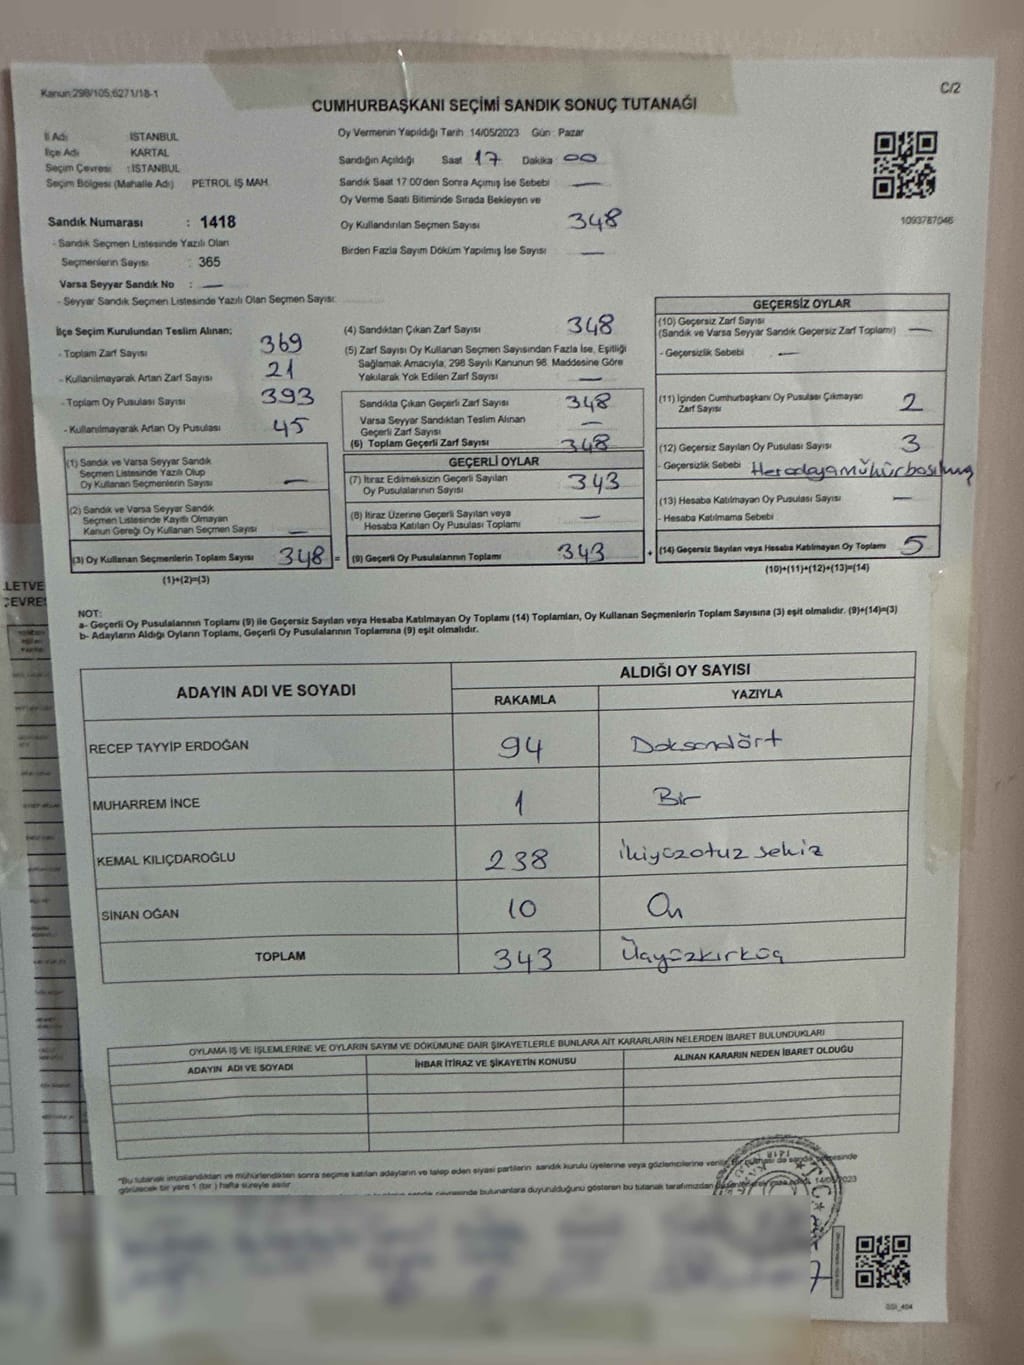 Kanun:298/105;6271/18-1
C/2
CUMHURBAŞKANI SEÇİMİ SANDIK SONUÇ TUTANAĞI
İl Adı : İSTANBUL
İlçe Adı : KARTAL
Seçim Çevresi : İSTANBUL
Seçim Bölgesi (Mahalle Adı) PETROL İŞ MAH.
Sandık Numarası : 1418
- Sandık Seçmen Listesinde Yazılı Olan
Seçmenlerin Sayısı : 365
Varsa Seyyar Sandık No : —
- Seyyar Sandık Seçmen Listesinde Yazılı Olan Seçmen Sayısı:
Oy Vermenin Yapıldığı Tarih :14/05/2023 Gün : Pazar
Sandığın Açıldığı Saat 17 Dakika 00
Sandık Saat 17:00'den Sonra Açımış İse Sebebi —
Oy Verme Saati Bitiminde Sırada Bekleyen ve
Oy Kullandırılan Seçmen Sayısı 348
Birden Fazla Sayım Döküm Yapılmış İse Sayısı —
1093787046
İlçe Seçim Kurulundan Teslim Alınan;
- Toplam Zarf Sayısı 369
- Kullanılmayarak Artan Zarf Sayısı 21
- Toplam Oy Pusulası Sayısı 393
- Kullanılmayarak Artan Oy Pusulası 45
(1) Sandık ve Varsa Seyyar Sandık
Seçmen Listesinde Yazılı Olup
Oy Kullanan Seçmenlerin Sayısı —
(2) Sandık ve Varsa Seyyar Sandık
Seçmen Listesinde Kayıtlı Olmayan
Kanun Gereği Oy Kullanan Seçmen Sayısı —
(3) Oy Kullanan Seçmenlerin Toplam Sayısı 348 =
(1)+(2)=(3)
(4) Sandıktan Çıkan Zarf Sayısı 348
(5) Zarf Sayısı Oy Kullanan Seçmen Sayısından Fazla İse, Eşitliği
Sağlamak Amacıyla; 298 Sayılı Kanunun 98. Maddesine Göre
Yakılarak Yok Edilen Zarf Sayısı —
Sandıkta Çıkan Geçerli Zarf Sayısı 348
Varsa Seyyar Sandıktan Teslim Alınan
Geçerli Zarf Sayısı —
(6) Toplam Geçerli Zarf Sayısı 348
GEÇERLİ OYLAR
(7) İtiraz Edilmeksizin Geçerli Sayılan
Oy Pusulalarının Sayısı 343
(8) İtiraz Üzerine Geçerli Sayılan veya
Hesaba Katılan Oy Pusulası Toplamı —
(9) Geçerli Oy Pusulalarının Toplamı 343 +
GEÇERSİZ OYLAR
(10) Geçersiz Zarf Sayısı
(Sandık ve Varsa Seyyar Sandık Geçersiz Zarf Toplamı) —
- Geçersizlik Sebebi —
(11) İçinden Cumhurbaşkanı Oy Pusulası Çıkmayan
Zarf Sayısı 2
(12) Geçersiz Sayılan Oy Pusulası Sayısı 3
- Geçersizlik Sebebi
(13) Hesaba Katılmayan Oy Pusulası Sayısı —
- Hesaba Katılmama Sebebi
(14) Geçersiz Sayılan veya Hesaba Katılmayan Oy Toplamı 5
(10)+(11)+(12)+(13)=(14)
NOT:
a- Geçerli Oy Pusulalarının Toplamı (9) ile Geçersiz Sayılan veya Hesaba Katılmayan Oy Toplamı (14) Toplamları, Oy Kullanan Seçmenlerin Toplam Sayısına (3) eşit olmalıdır. (9)+(14)=(3)
b- Adayların Aldığı Oyların Toplamı, Geçerli Oy Pusulalarının Toplamına (9) eşit olmalıdır.
ADAYIN ADI VE SOYADI
ALDIĞI OY SAYISI
RAKAMLA YAZIYLA
RECEP TAYYİP ERDOĞAN 94 Doksandört
MUHARREM İNCE 1 Bir
KEMAL KILIÇDAROĞLU 238 ikiyüzotuz sekiz
SİNAN OĞAN 10 On
TOPLAM 343 Üçyüzkırküç
OYLAMA İŞ VE İŞLEMLERİNE VE OYLARIN SAYIM VE DÖKÜMÜNE DAİR ŞİKAYETLERLE BUNLARA AİT KARARLARIN NELERDEN İBARET BULUNDUKLARI
ADAYIN ADI VE SOYADI İHBAR İTİRAZ VE ŞİKAYETİN KONUSU ALINAN KARARIN NEDEN İBARET OLDUĞU
"Bu tutanak imzalandıktan ve mühürlendikten sonra seçime katılan adayların ve talep eden siyasi partilerin sandık kurulu üyelerine veya gözlemcilerine
görülecek bir yere 1 (bir ) hafta süreyle asılır
çevresinde bulunanlara duyurulduğunu gösteren bu tutanak tarafımızdan
LETVE
ÇEVRE